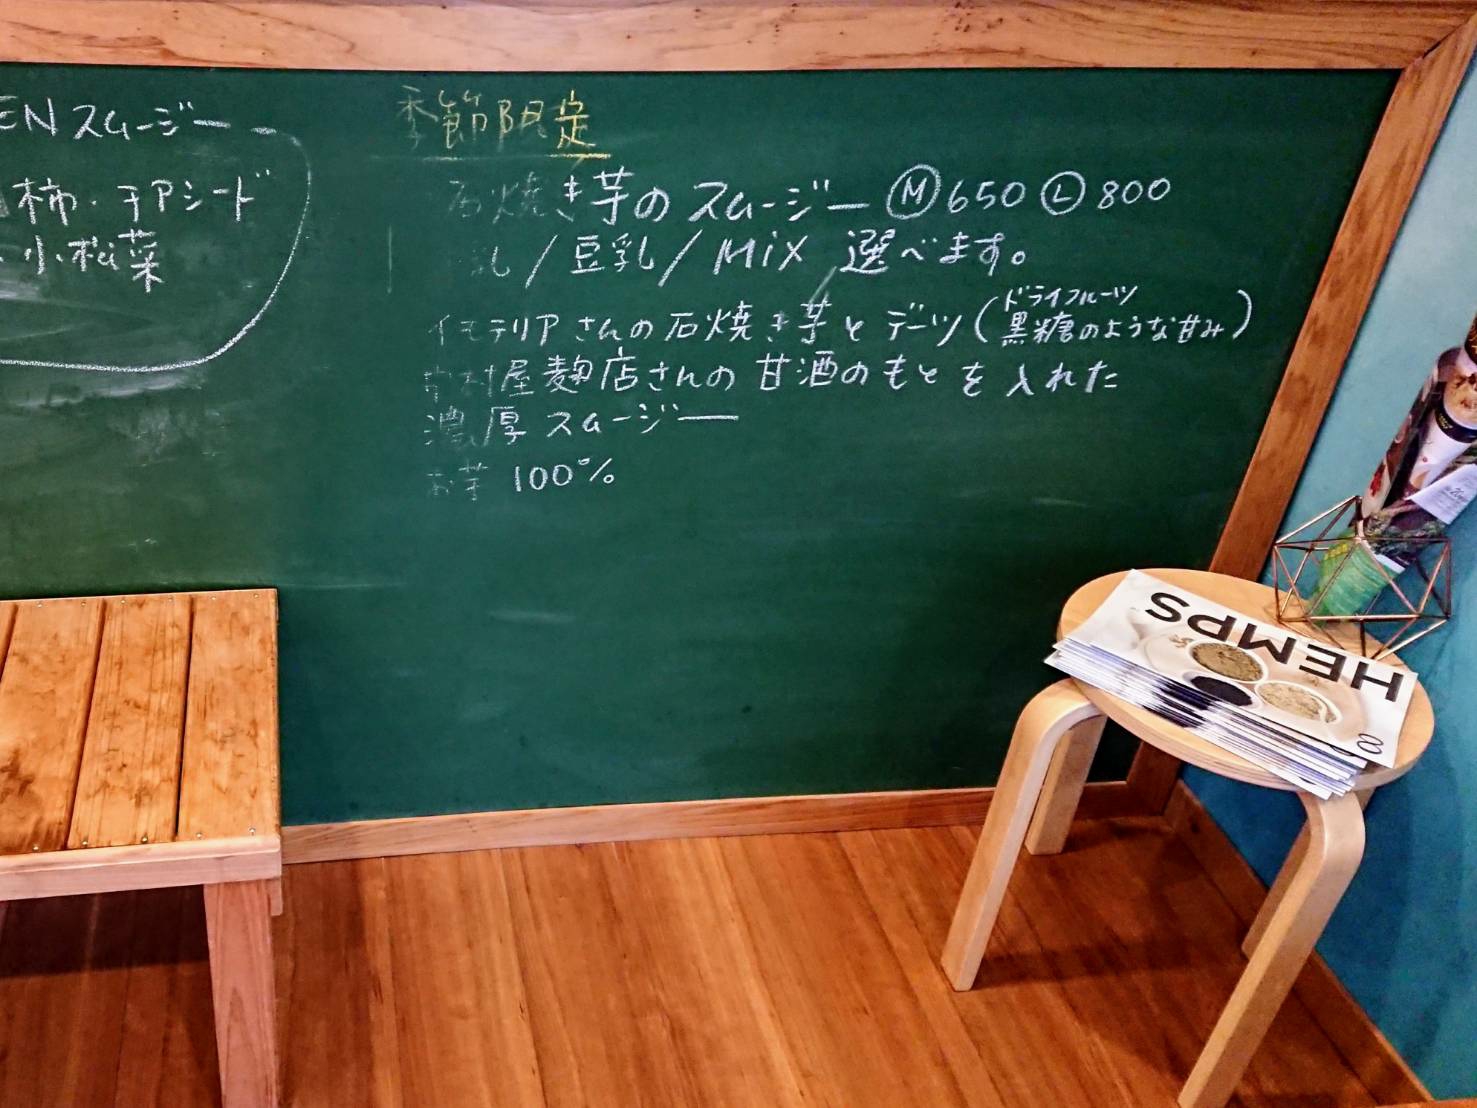 ENスムージー
柿・チアシード
小松菜
季節限定
石焼き芋のスムージー Ⓜ650 Ⓛ800
乳/豆乳/MiX 選べます。
イモテリアさんの石焼き芋とデーツ(ドライフルーツ
黒糖のような甘み)
中村屋麹店さんの甘酒のもとを入れた
濃厚スムージー
お芋100%
HEMPS